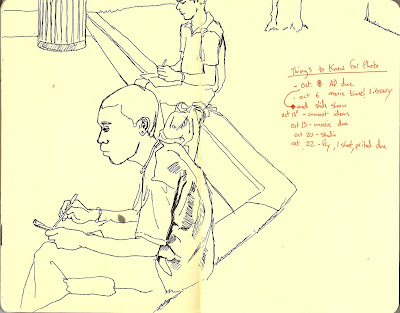 Things to Know for Photo
- oct 8 AD due
oct 6 movie time library
and slide show
oct 13 - concept ideas
oct 15 - movie due
oct 20 - studio
oct 22 - Fry, 1 shot, printed due